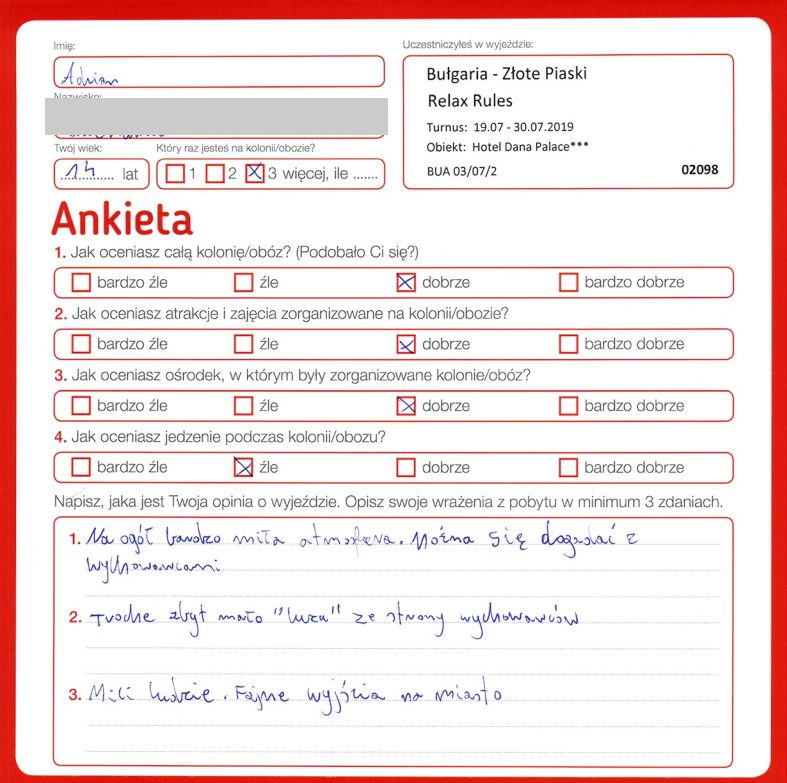 Imię:
Uczestniczyłeś w wyjeździe:
Adrian
Bułgaria - Złote Piaski
Relax Rules
Turnus: 19.07 - 30.07.2019
Obiekt: Hotel Dana Palace***
BUA 03/07/2
02098
Twój wiek:
Który raz jesteś na kolonii/obozie?
14 lat
1 2 3 więcej, ile .......
Ankieta
1. Jak oceniasz całą kolonię/obóz? (Podobało Ci się?)
bardzo źle źle dobrze bardzo dobrze
2. Jak oceniasz atrakcje i zajęcia zorganizowane na kolonii/obozie?
bardzo źle źle dobrze bardzo dobrze
3. Jak oceniasz ośrodek, w którym były zorganizowane kolonie/obóz?
bardzo źle źle dobrze bardzo dobrze
4. Jak oceniasz jedzenie podczas kolonii/obozu?
bardzo źle źle dobrze bardzo dobrze
Napisz, jaka jest Twoja opinia o wyjeździe. Opisz swoje wrażenia z pobytu w minimum 3 zdaniach.
1. Na ogół bardzo miła atmosfera. Można się dogadać z
wychowawcami
2. Troche zbyt mało "luzu" ze strony wychowawców
3. Mili ludzie. Fajne wyjścia na miasto